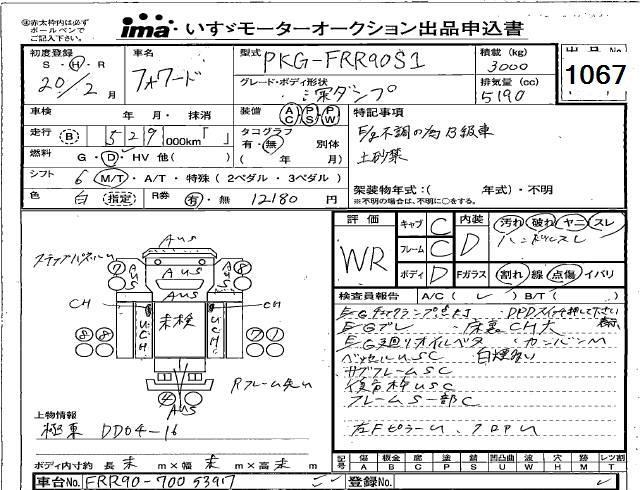 ◎赤太枠内は必ず
ボールペンで
ご記入下さい。
ima いすゞモーターオークション出品申込書
初度登録 S・H・R 20/2月
車名 フォワード
型式 PKG-FRR90S1
積載 (kg) 3000
出品No 1067
グレード・ボディ形状 深ダンプ
排気量 (cc) 5190
車検 年 月・抹消
装備 AC PS PW
特記事項
走行 B 529,000km「 」
タコグラフ 有・無 別体 ( 年 月)
E/g不調の為B級車
土砂禁
燃料 G・D・HV 他( )
シフト 6 M/T・A/T・特殊 (2ペダル・3ペダル)
色 白 (指定) R券 有・無 12180 円
架装物年式:( 年式)・不明
※不明の場合は、不明に○をする。
評価 WR
キャブ C
フレーム C
ボディ D
内装 D
汚れ 破れ ヤニ スレ
ハンドルスレ
Fガラス 割れ 線 点傷 イバリ
検査員報告 A/C( ✓ ) B/T( )
E/Gチェックランプ点灯 DPDスイッチ押して下さい
E/Gブレ 床裏CH大
E/G廻りオイルベタ カンバンM
ベッセルUSC 白煙多い
サブフレームSC
荷台枠USC
フレームS一部C
左FピラーU、フロアU
ステップパネルU
AUS
AUS
AUS
AUS
AUS
7
8
CH
CH
UCH
未検
UCH
8 8
7 7
4
AUS
Rフレーム先U
上物情報
極東 DD04-16
ボディ内寸約 長 未 m×幅 未 m×高 未 m
記号 傷A 板金B 腐C 塗P 錆S 凹凸曲U 波W 穴H 跡M レツ割T
車台No. FRR90-7005397
登録No.